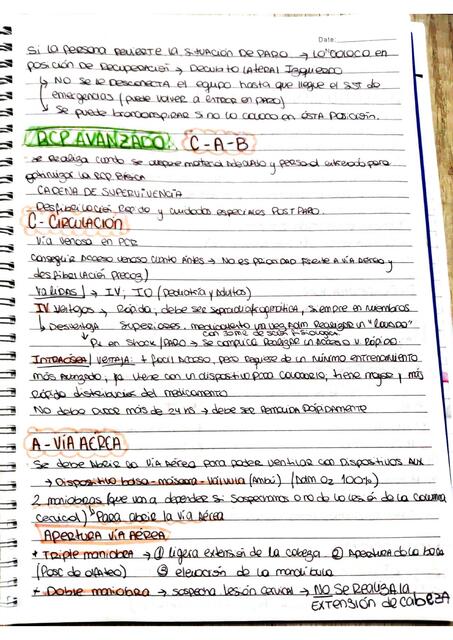 Date:
Si la persona revierte la situación de paro → lo coloco en
posición de recuperación → Decúbito lateral Izquierdo
↳ NO se le desconecta el equipo hasta que llegue el sist de
emergencias (puede volver a entrar en paro)
↳ Se puede broncoaspirar si no lo coloco en esta posición.
RCP AVANZADO: C-A-B
Se realiza cuando se material adecuado y personal entrenado para
la RCP Básica
CADENA DE SUPERVIVENCIA
Desfibrilación rápida y cuidados especiales POST PARO.
C- CIRCULACIÓN
Vía venosa en PCR
conseguir acceso venoso cuanto antes → No es prioridad frente a vía aérea y
desfibrilación precoz)
Válidas) → IV, IO (Pediatría y Adultos)
IV Ventajas → Rápida, debe ser supradiafragmática, siempre en miembros
↳ Desventaja superiores, medicamento una vez adm realizar un "lavado"
con 20 ml de sol. fisiológica
↳ Px en Shock/PARO → se complica realizar un acceso V. Rápido.
INTRAÓSEA / VENTAJA: + fácil acceso, pero requiere de un mínimo entrenamiento
más avanzado, ya viene con un dispositivo para colocarlo, tiene mayor y más
rápida distribución del medicamento
No debe durar más de 24 hs → debe ser removida rápidamente
A - VÍA AÉREA
Se debe abrir la vía aérea para poder ventilar con Dispositivos Aux
→ Dispositivo bolsa-máscara-válvula (Ambú) (Adm O2 100%)
2 maniobras (que van a depender si sospechamos o no de la lesión de la columna
cervical) ↳ Para abrir la vía aérea
APERTURA VÍA AÉREA
* Triple maniobra → ① ligera extensión de la cabeza ② Apertura de la boca
(Posc de olfateo) ③ elevación de la mandíbula
* Doble maniobra → sospecha lesión cervical → NO se REALIZA la
EXTENSIÓN de cabeza